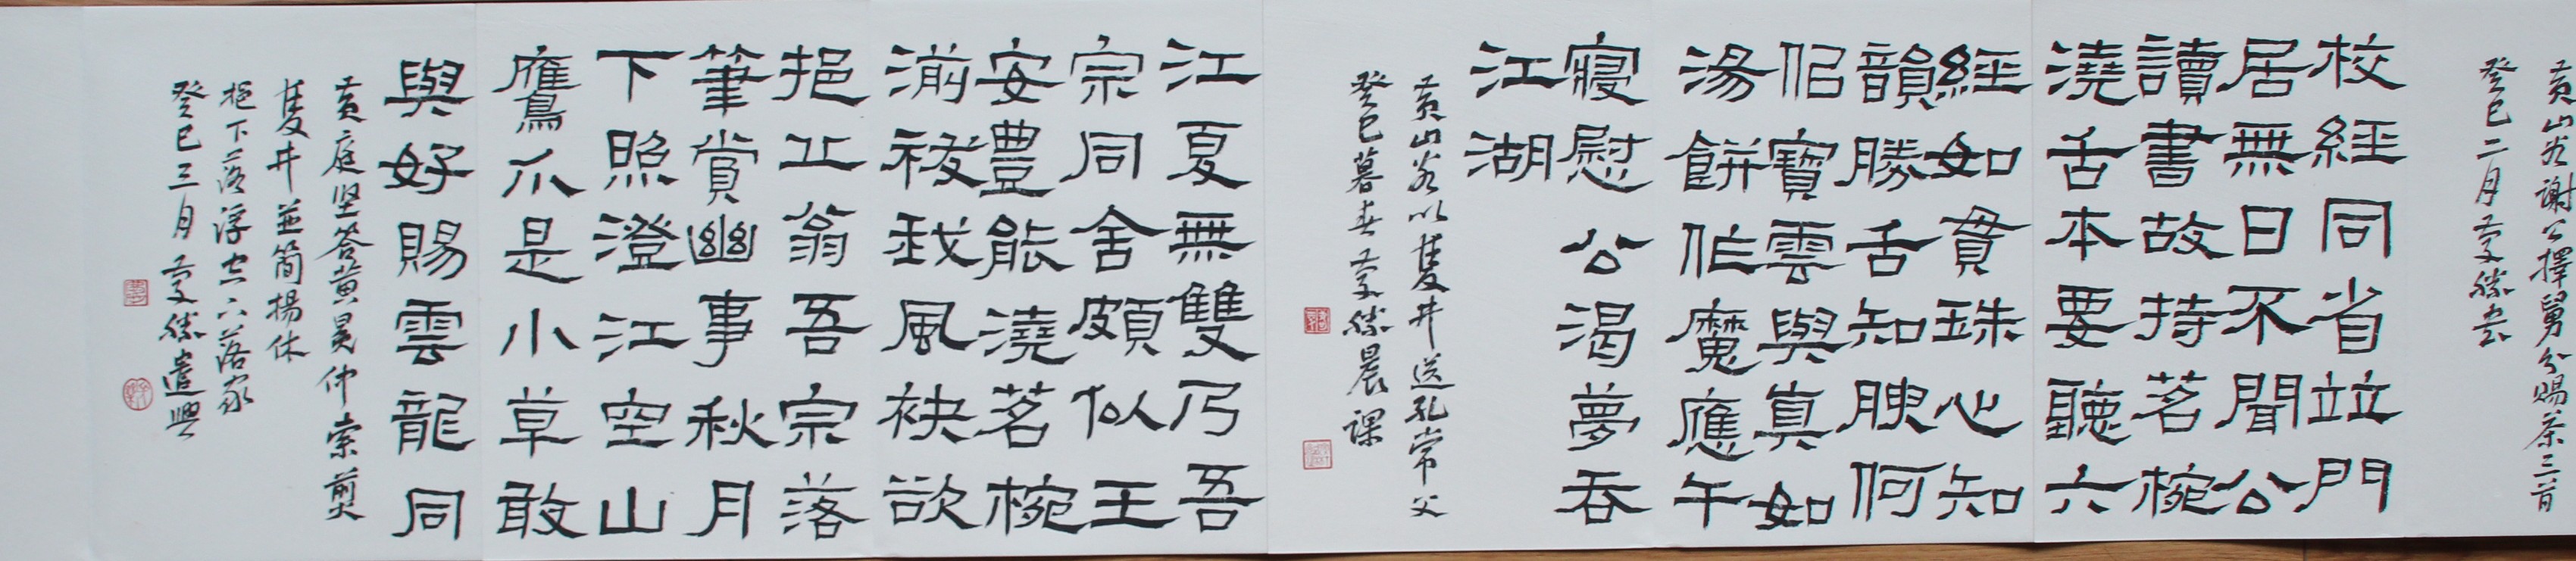 黄山谷谢公擇舅分赐茶三首
癸巳二月
校經同省竝門
居無日不聞公
讀書故持茗椀
澆舌本要聽六
經如貫珠心知
韻勝舌知腴何
佀寶雲與真如
湯餅作魔應午
寢慰公渴夢吞
江湖
黄山谷以隻井送孔常父
癸巳暮春晨课
江夏無雙乃吾
宗同舍頗似王
安豊能澆茗椀
湔祓我風袂欲
挹丘翁吾宗落
筆賞幽事秋月
下照澄江空山
鷹爪是小草敢
與好賜雲龍同
黄庭坚答黄冕仲索煎
隻井並简揚休
挹下落浮字六落家
癸巳三月遣興